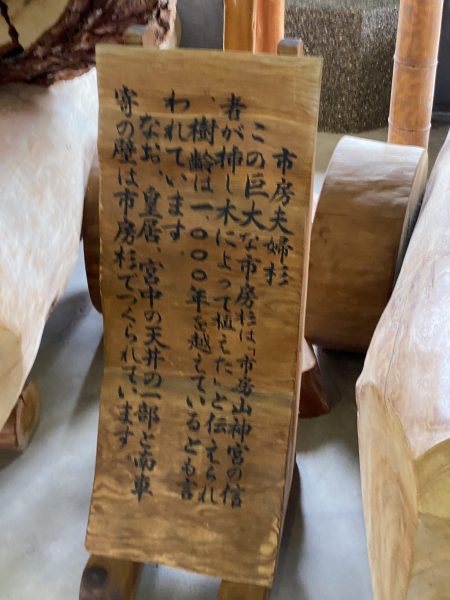 市房夫婦杉
この巨大な市房杉は「市房山神宮の信
者が挿し木によって植えた」と伝えられ
、樹齢は一、〇〇〇年を越えているとも言
われています
なお、皇居、宮中の天井の一部と南車
寄の壁は市房杉でつくられています、